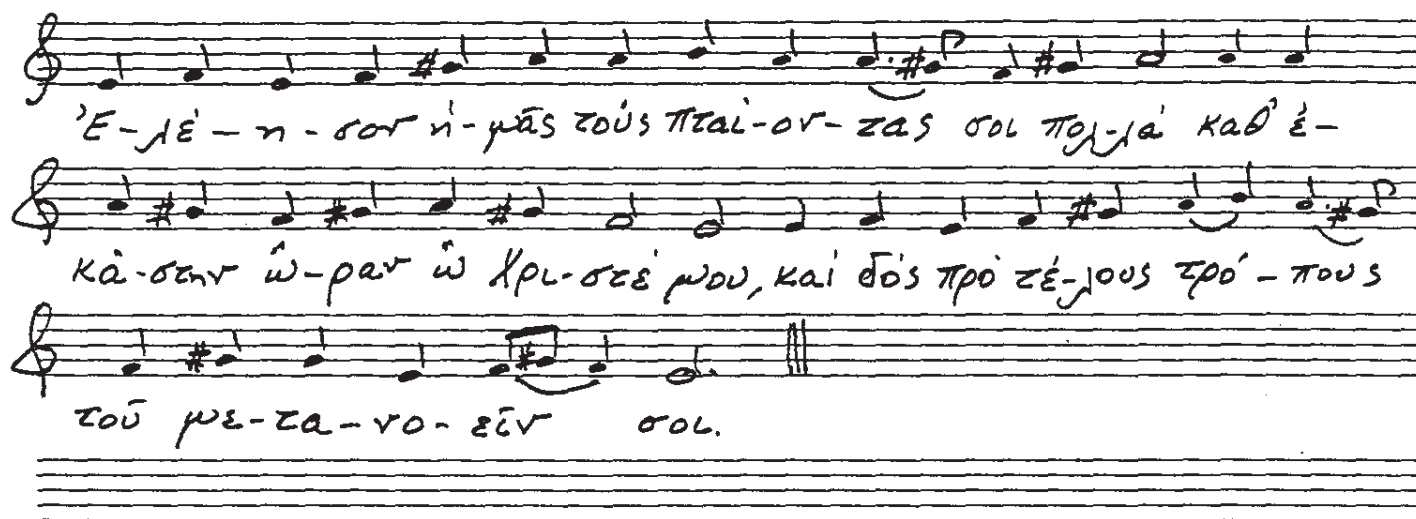 Ἐ-λέ-η-σον ἡ-μᾶς τούς πταί-ον-τας σοι πολ-λά καθ' ἑ-
κά-στην ὥ-ραν ὦ Χρι-στέ μου, καί δός πρό τέ-λους τρό-πους
τοῦ με-τα-νο-εῖν σοι.